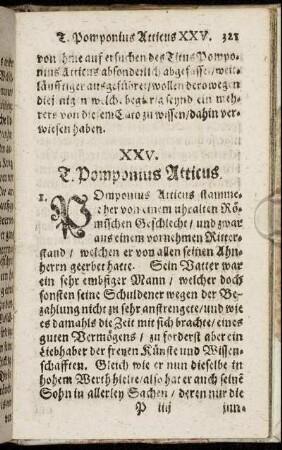 T. Pomponius Atticus XXV. 321
von ihme auf ersuchen des Titus Pompo-
nius Atticus absonderlich abgefasset/weit-
läufftiger ausgeführet/wollen derowegen
die
welch. begierig seynd ein meh-
rers von diesem Cato zu wissen/dahin ver-
wiesen haben.
XXV.
T. Pomponius Atticus.
1. POmponius Atticus stamme-
te her von einem uhralten Rö-
mischen Geschlecht/ und zwar
aus einem vornehmen Ritter-
stand / welchen er von allen seinen Ahn-
herrn geerbet hatte. Sein Vatter war
ein sehr embsiger Mann / welcher doch
sonsten seine Schuldener wegen der Be-
zahlung nicht zu sehr anstrengete/und wie
es damahls die Zeit mit sich brachte/eines
guten Vermögens/ zu forderst aber ein
Liebhaber der freyen Künste und Wissen-
schafften. Gleich wie er nun dieselbe in
hohem Werth hielte/also hat er auch seinē
Sohn in allerley Sachen / deren nur die
P iiij jun-